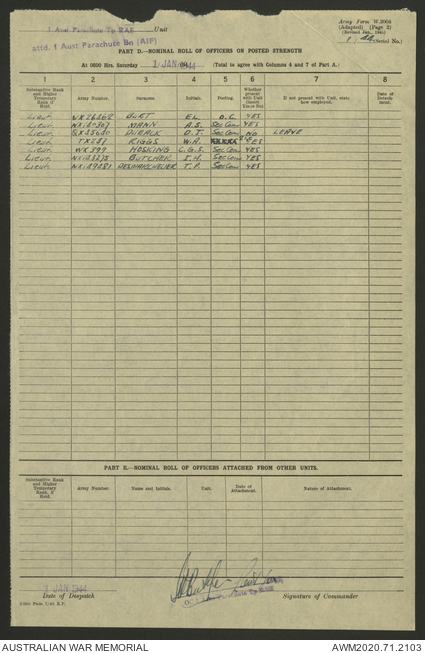 1 Aust Parachute Tp RAE Unit
attd. 1 Aust Parachute Bn (AIF)
Army Form W.3008
(Adapted) (Page 2)
(Revised Jan., 1943)
(Serial No.)
PART D.—NOMINAL ROLL OF OFFICERS ON POSTED STRENGTH
At 0600 Hrs. Saturday 1 JAN 1944 (Total to agree with Columns 4 and 7 of Part A.)
1 2 3 4 5 6 7 8
Substantive Rank and Higher Temporary Rank if Held. Army Number. Surname. Initials. Posting. Whether present with Unit (Insert Yes or No) If not present with Unit, state how employed. Date of Detachment.
Lieut. E.L. O.C. YES
Lieut. MANN A.S. Sec Com YES
Lieut. D.T. Sec Com NO LEAVE
Lieut. RIGGS W.A. YES
Lieut. WX399 HOSKING L.G.S. Sec Com YES
Lieut. BUTCHER S.H. Sec Com YES
Lieut. T.P. Sec Com YES
PART E.—NOMINAL ROLL OF OFFICERS ATTACHED FROM OTHER UNITS.
Substantive Rank and Higher Temporary Rank, if Held. Army Number. Name and Initials. Unit. Date of Attachment. Nature of Attachment.
JAN 1944
Date of Despatch
Parachute Tp RAE
Signature of Commander
AUSTRALIAN WAR MEMORIAL AWM2020.71.2103